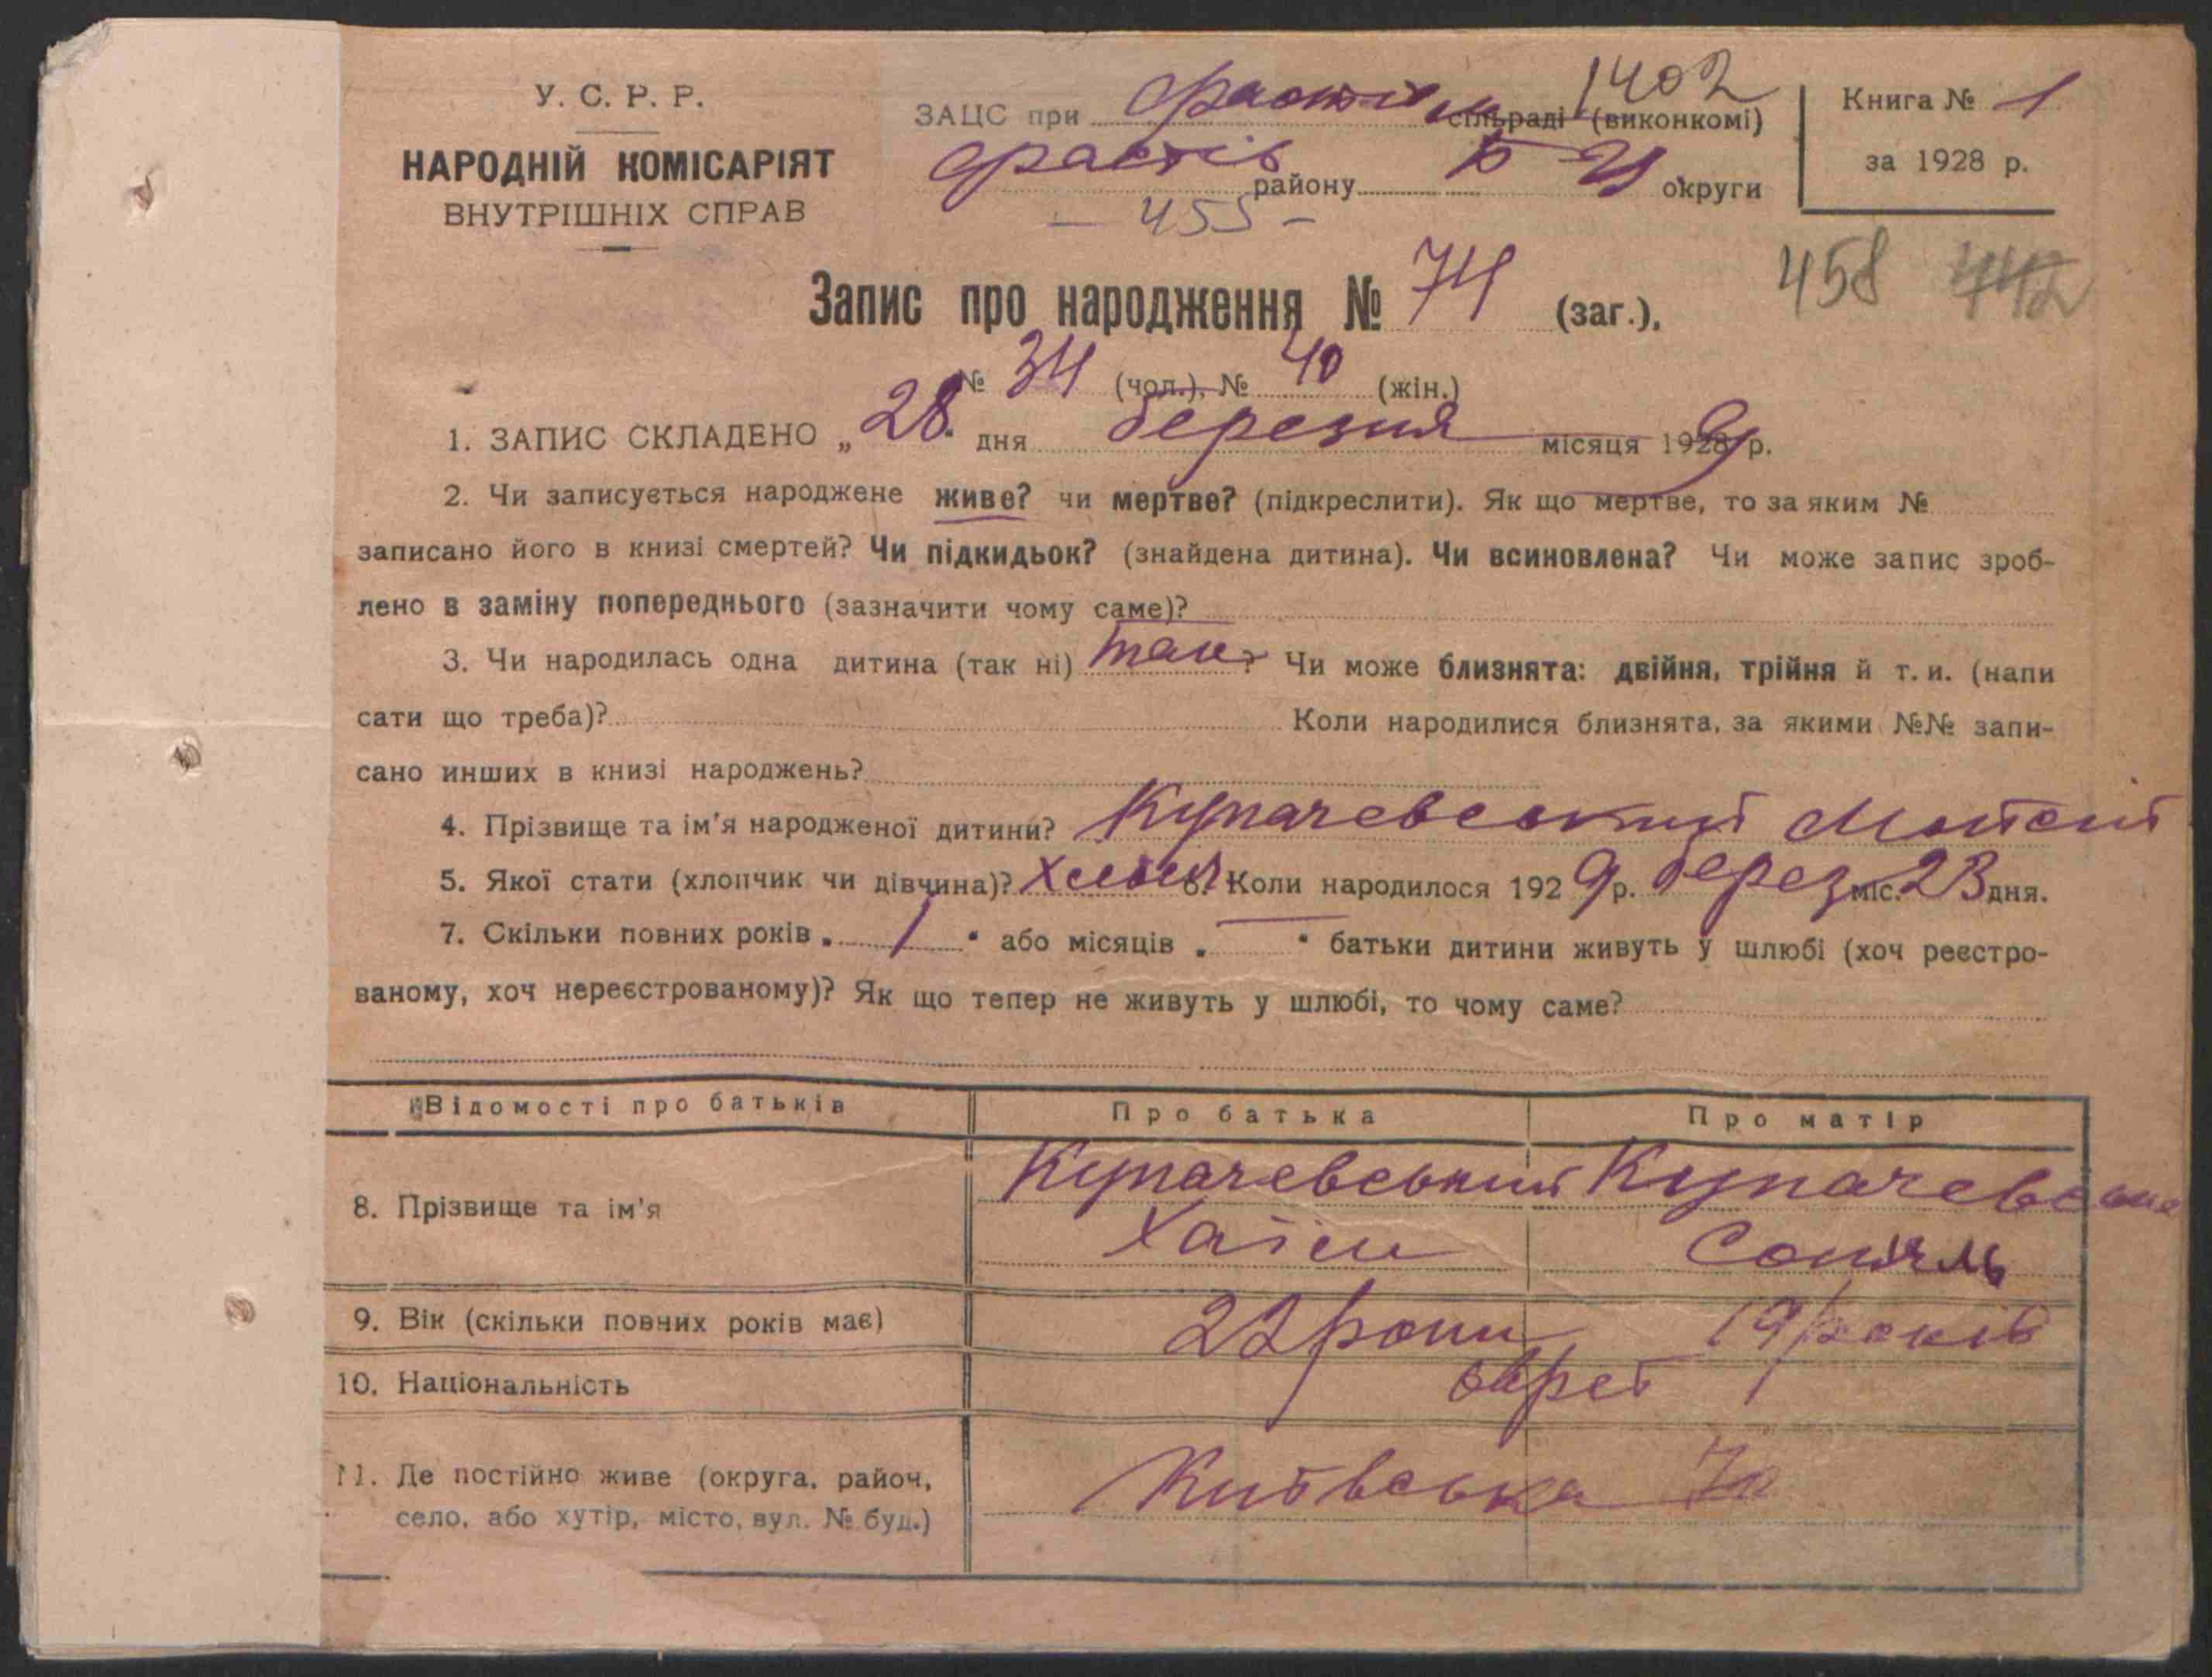 У. С. Р. Р.
НАРОДНІЙ КОМІСАРІЯТ
ВНУТРІШНІХ СПРАВ
ЗАЦС при сільраді (виконкомі)
1402
Фастів району округи
Книга № 1
за 1928 р.
— 455 —
458 442
Запис про народження № 74 (заг.),
№ 34 (чол.), № 40 (жін.)
1. ЗАПИС СКЛАДЕНО „28" дня березня місяця 1929 р.
2. Чи записується народжене живе? чи мертве? (підкреслити). Як що мертве, то за яким №
записано його в книзі смертей? Чи підкидьок? (знайдена дитина). Чи всиновлена? Чи може запис зроб-
лено в заміну попереднього (зазначити чому саме)?
3. Чи народилась одна дитина (так ні) так? Чи може близнята: двійня, трійня й т. и. (напи
сати що треба)? Коли народилися близнята, за якими №№ запи-
сано инших в книзі народжень?
4. Прізвище та ім'я народженої дитини? Купачевський Мойсий
5. Якої стати (хлопчик чи дівчина)? 6. Коли народилося 1929 р. берез міс. 23 дня.
7. Скільки повних років „ 1 " або місяців „ — " батьки дитини живуть у шлюбі (хоч реєстро-
ваному, хоч нереєстрованому)? Як що тепер не живуть у шлюбі, то чому саме?
Відомості про батьків Про батька Про матір
8. Прізвище та ім'я Купачевський Купачевська
Хаїм
9. Вік (скільки повних років має) 22 роки 19 років
10. Національність євреї
11. Де постійно живе (округа, район, Київська
село, або хутір, місто, вул. № буд.)